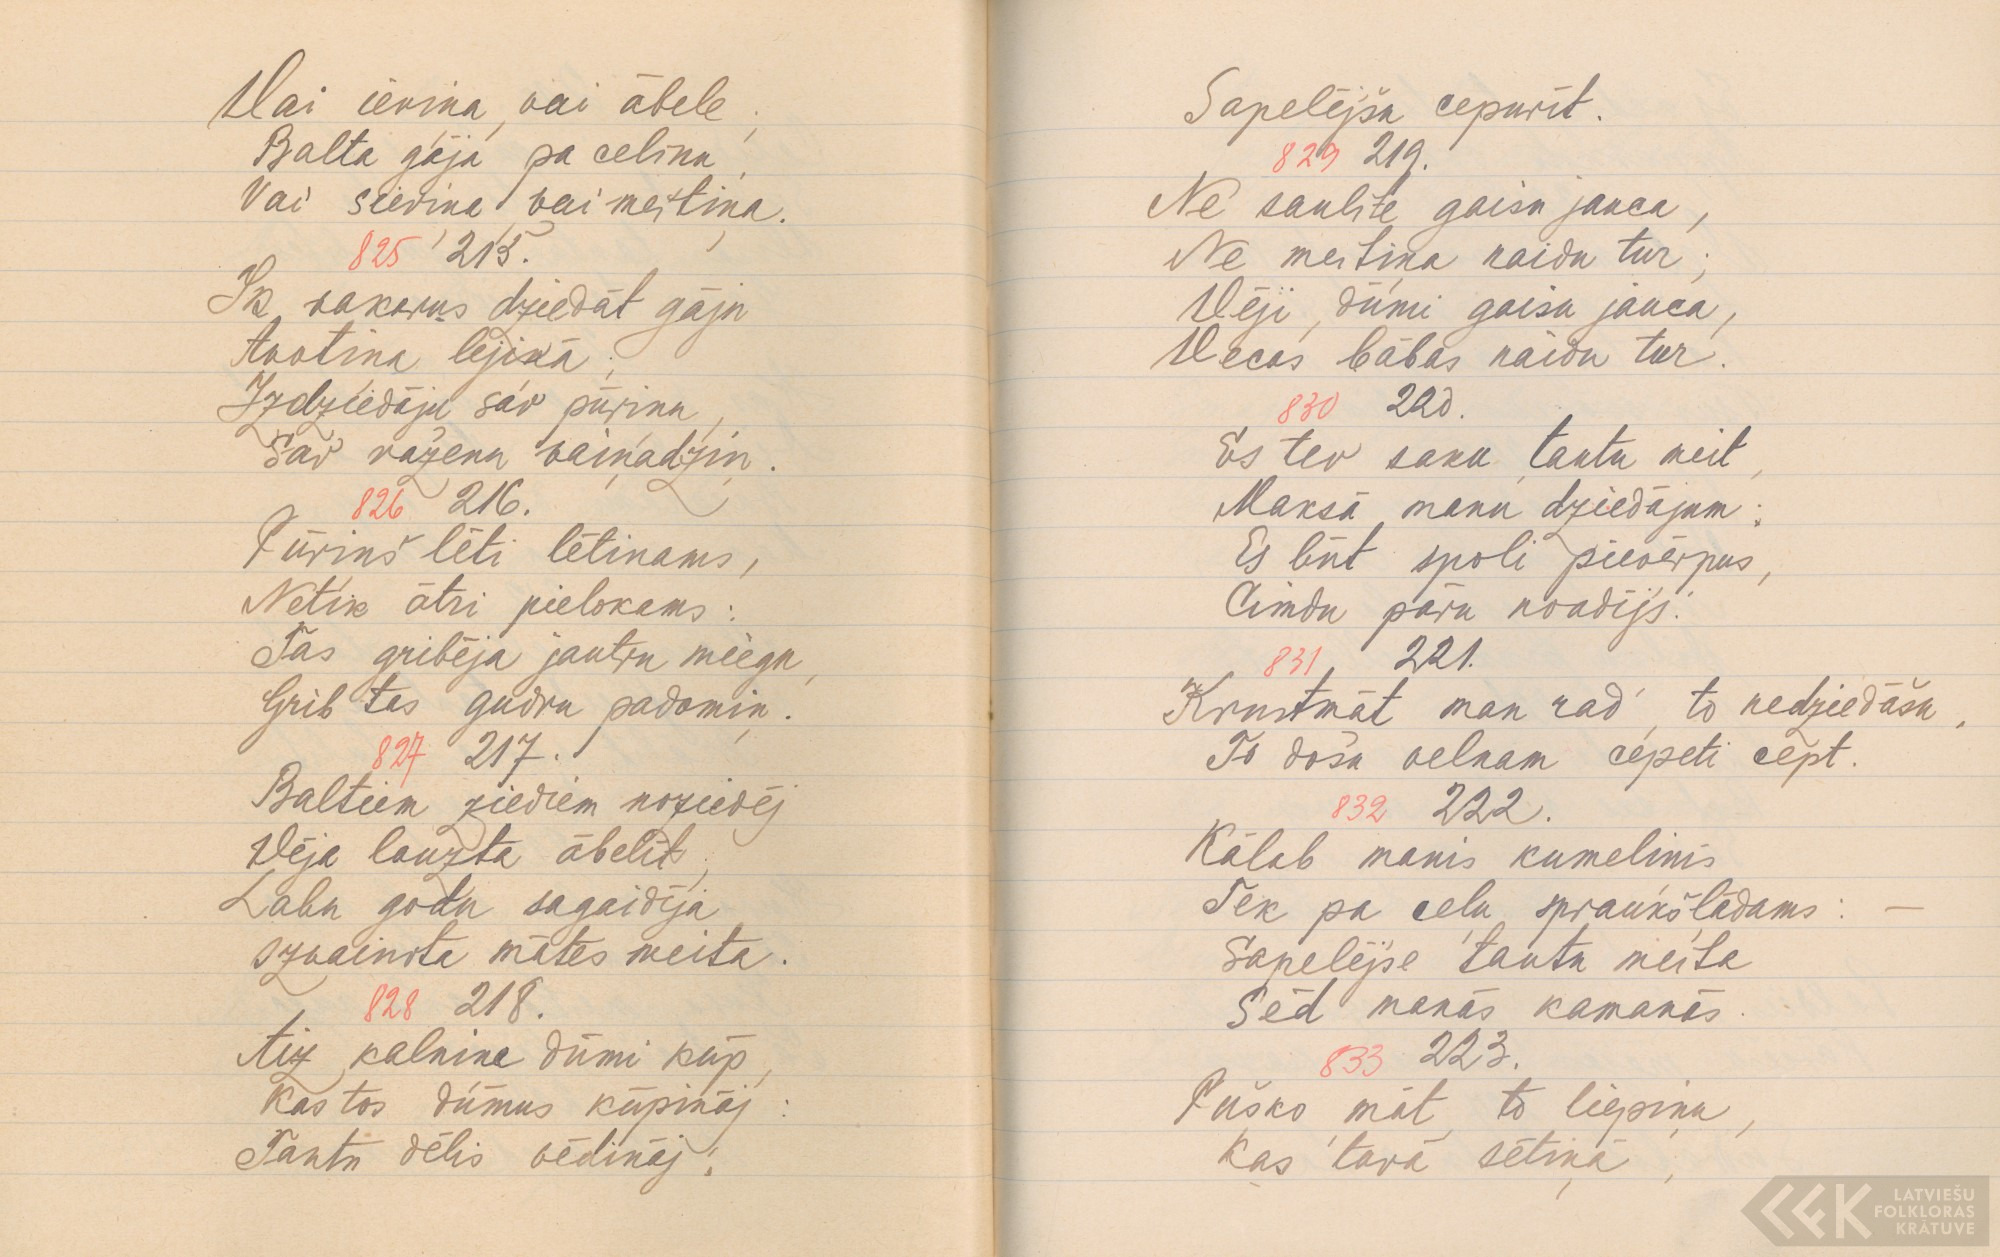 Vai ieviņa, vai ābele;
Balta gāja pa celiņu,
Vai sieviņa, vai meitiņa.
825 215.
Ik vakarus dziedāt gāju
Avotiņa lejiņā;
Izdziedāju sav pūriņu,
Sav raženu vaiņadziņ.
826 216.
Pūriņš lēti lētinams,
Netik ātri pielokams:
Tas gribēja jautru miegu,
Grib tas gudru padomiņ.
827 217.
Baltiem ziediem noziedēj
Vēja lauzta ābelīt;
Labu godu sagaidīja
Izvainota mātes meita.
828 218.
Aiz kalniņa dūmi kūp,
Kas tos dūmus kūpināj:
Tautu dēlis vēdināj
Sapelējšu cepurīt.
829 219.
Ne saulīte gaisu jauca,
Ne meitiņa naidu tur;
Vēji, dūmi gaisu jauca,
Vecas bābas naidu tur.
830 220.
Es tev saku, tautu meit,
Maksā manu dziedājum:
Es būt spoli pievērpus,
Cimdu pāru noadījs.
831 221.
Krustmāt man rad, to nedziedāšu,
To došu velnam cepeti cept.
832 222.
Kālab manis kumeliņis
Tek pa ceļu sprauķšlādams: —
Sapelējse tautu meita
Sēd manās kamanās.
833 223.
Puško, māt, to liepiņu,
Kas tavā sētiņā,
LATVIEŠU
FOLKLORAS
KRĀTUVE